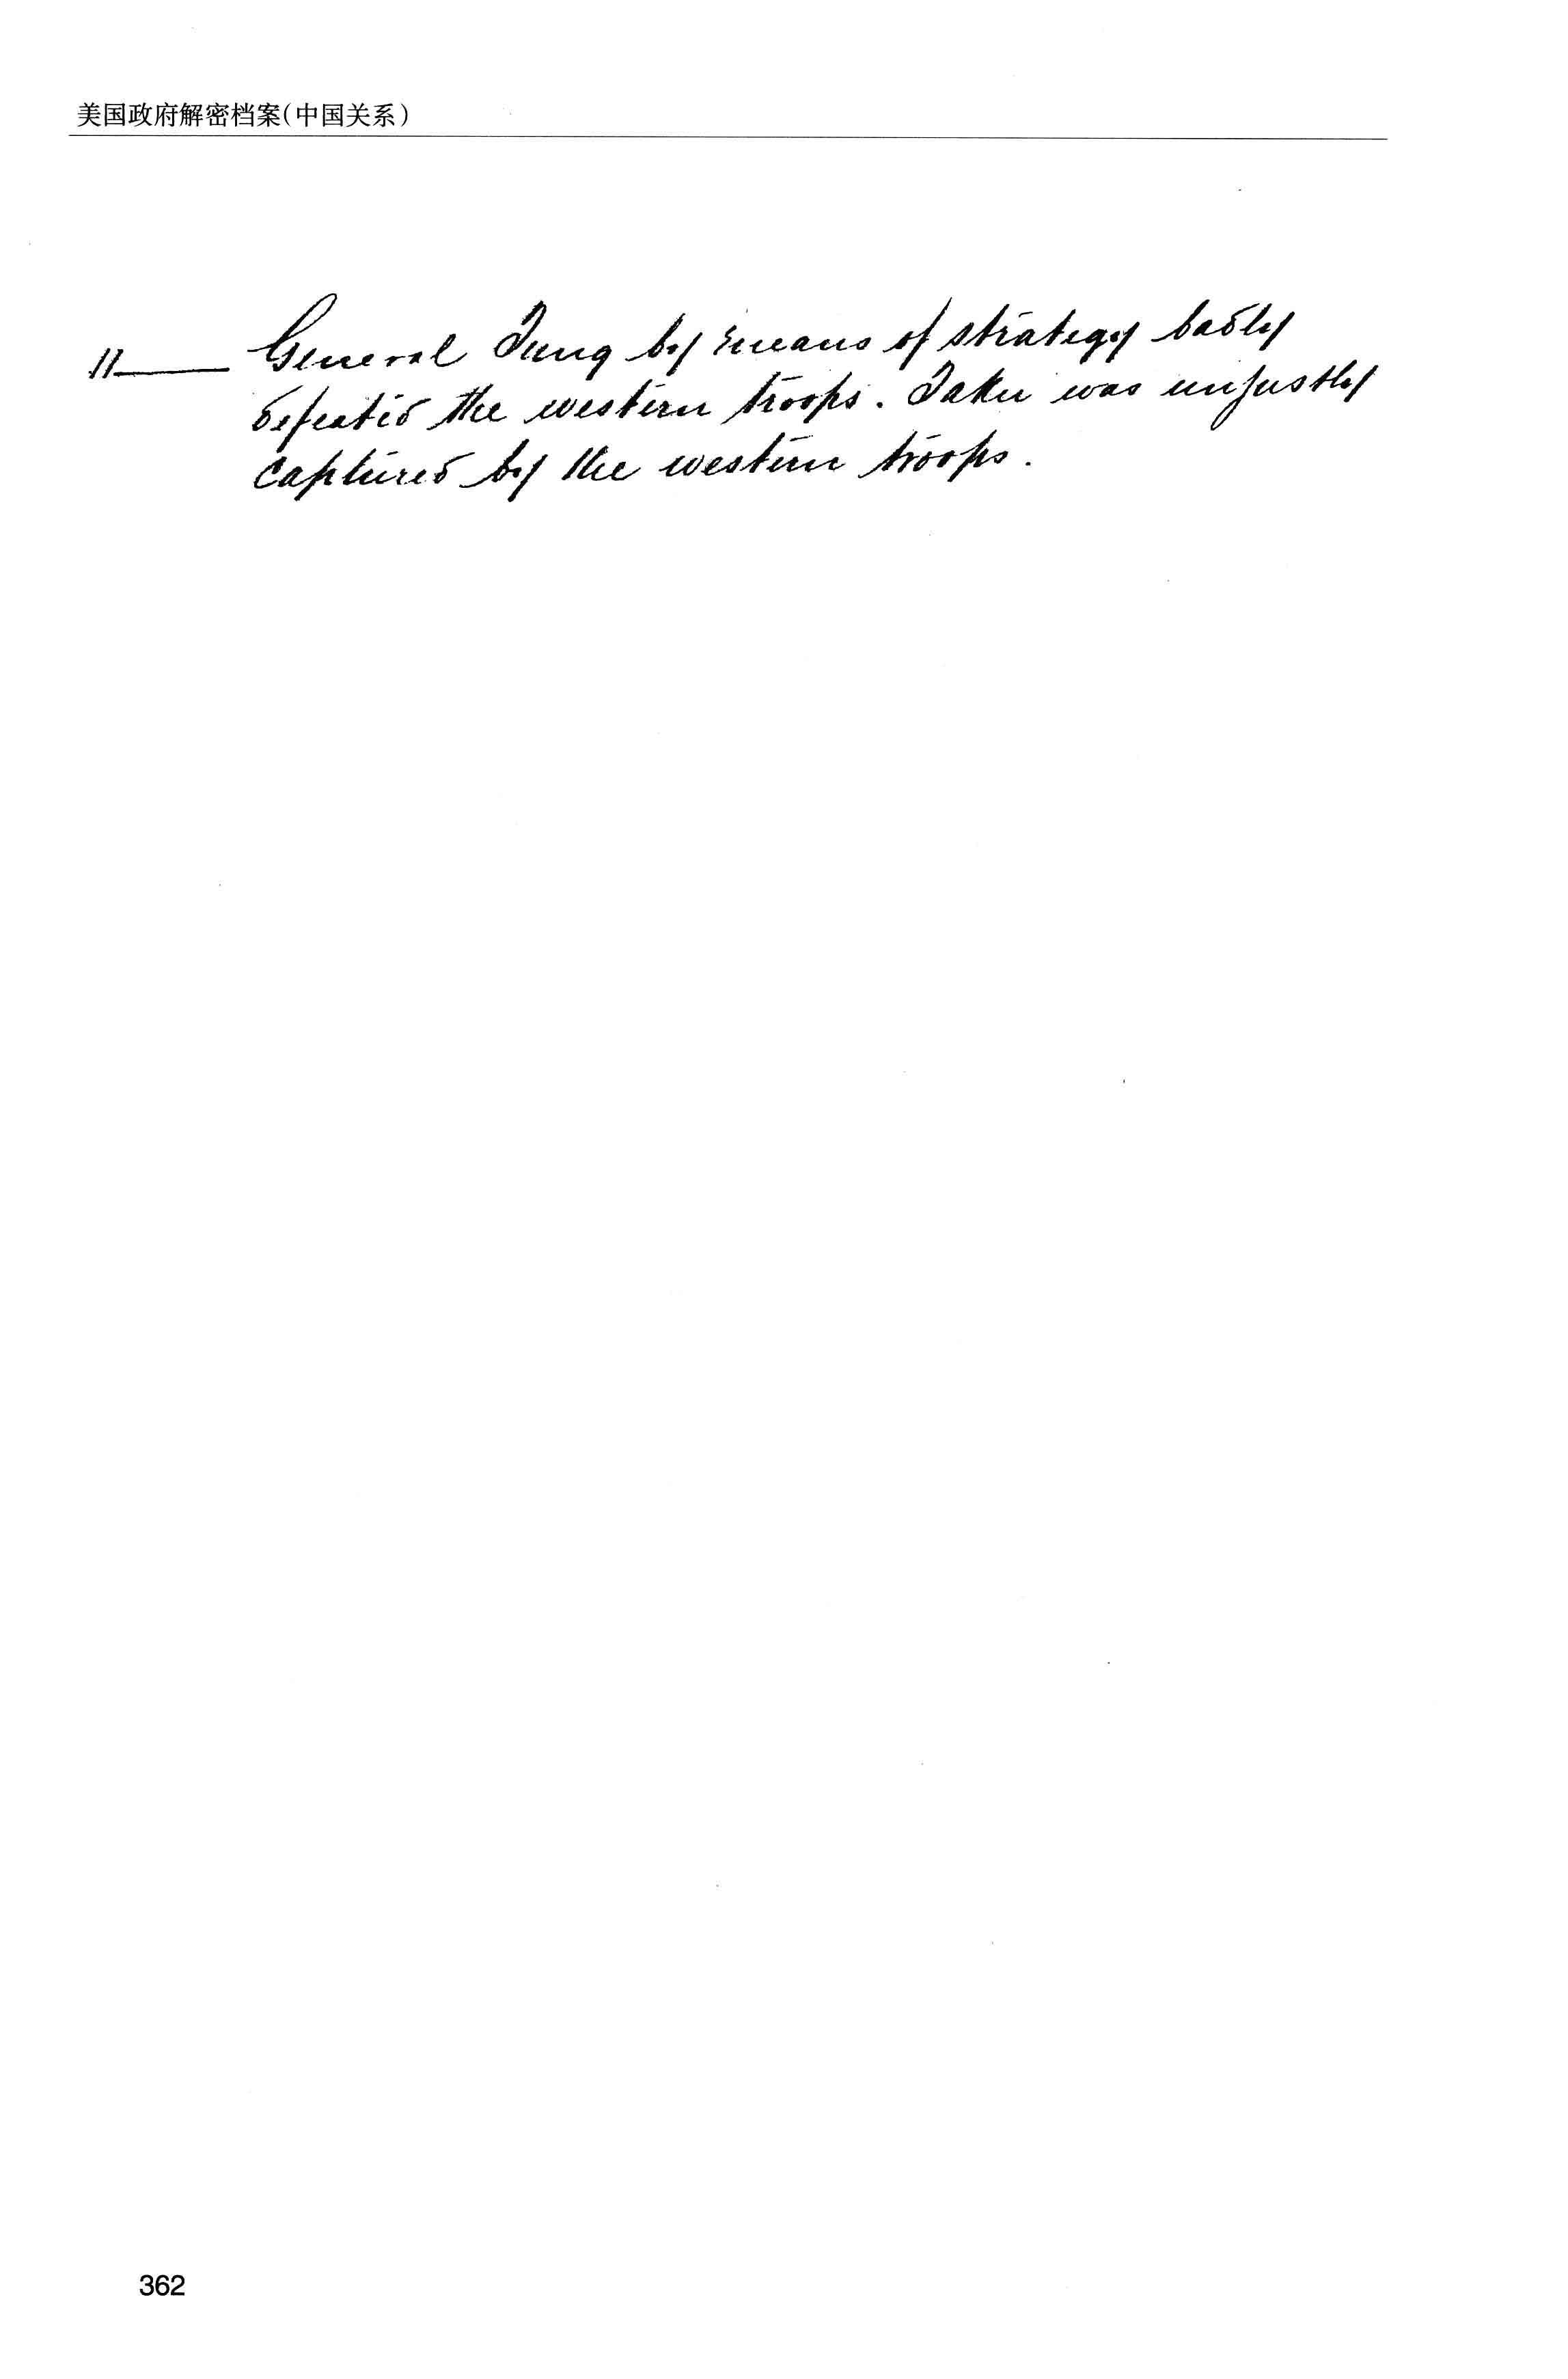 美国政府解密档案(中国关系)
11 General Tung by means of strategy badly
defeated the western troops. Taku was unjustly
captured by the western troops.
362